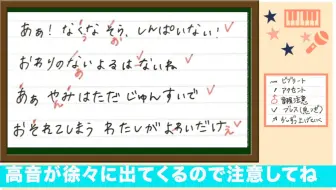 あぁ!なくなそう、しんぱいない!
おわりのないよるはないね
あぁ やみはただじゅんすいで
おそれてしまう わたしがよわいだけぇ
ビブラート
アクセント
音程注意
ブレス(息つぎ)
高音が徐々に出てくるので注意してね